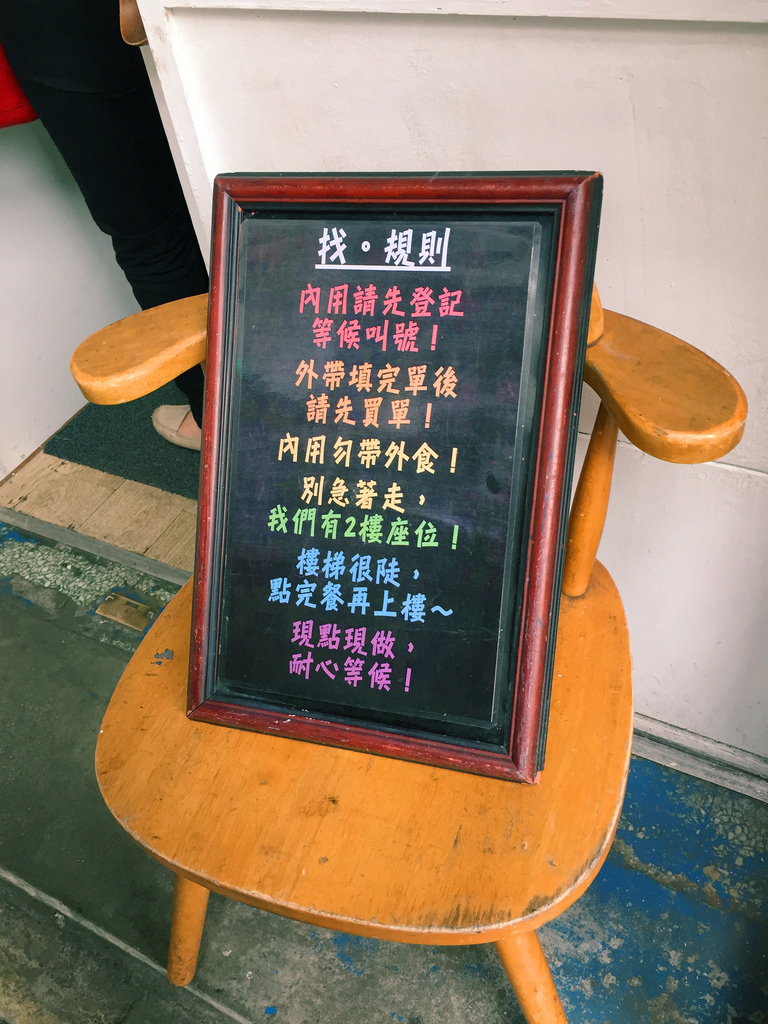 找。規則
內用請先登記
等候叫號！
外帶填完單後
請先買單！
內用勿帶外食！
別急著走，
我們有2樓座位！
樓梯很陡，
點完餐再上樓～
現點現做，
耐心等候！